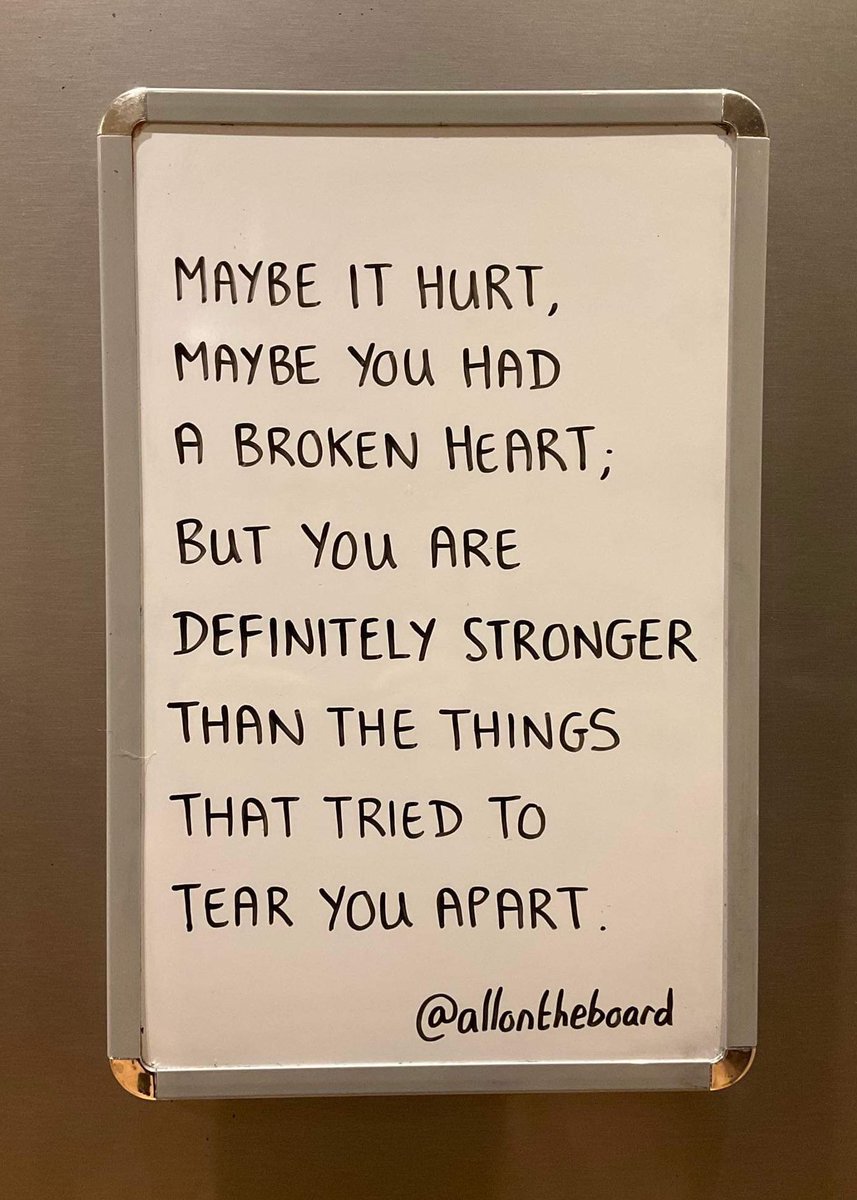 MAYBE IT HURT,
MAYBE YOU HAD
A BROKEN HEART;
BUT YOU ARE
DEFINITELY STRONGER
THAN THE THINGS
THAT TRIED TO
TEAR YOU APART.
@allontheboard